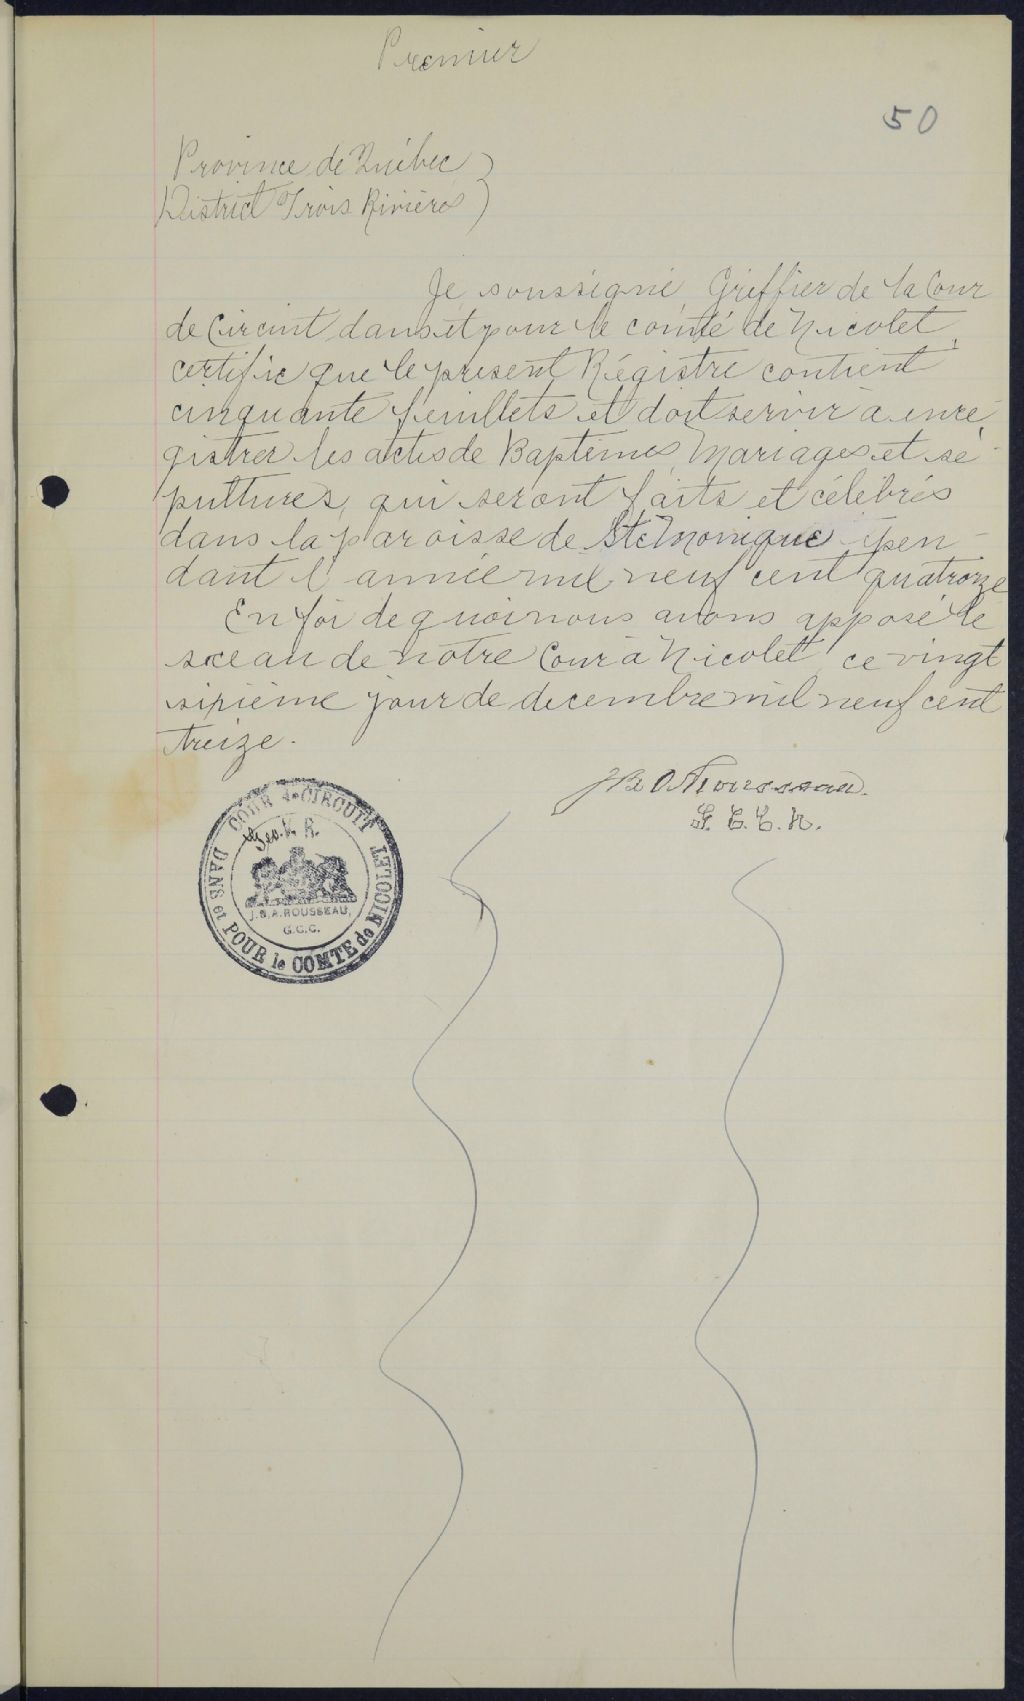 Premier
50
Province de Québec )
District Trois Rivières )
Je soussigné, Greffier de la Cour
de Circuit dans et pour le comté de Nicolet,
certifie que le present Régistre contient
cinquante feuillets et doit servir à enré-
gistrer les actes de Baptêmes, Mariages et sé-
pultures, qui seront faits et célebrés
dans la paroisse de Ste Monique pen-
dant l'année mil neuf cent quatroze
En foi de quoi nous avons apposé le
sceau de notre Cour à Nicolet ce vingt
sixième jour de decembre mil neuf cent
treize.
Rousseau.
G. C. C. N.
COUR de CIRCUIT
DANS et POUR le COMTE de NICOLET
Geo. V. R.
J.B.A. ROUSSEAU,
G.C.C.